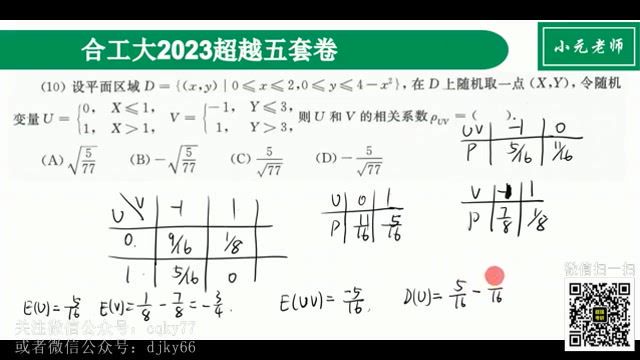 合工大2023超越五套卷
小元老师
(10) 设平面区域 D = {(x,y) | 0⩽x⩽2,0⩽y⩽4−x²},在 D 上随机取一点 (X,Y),令随机
变量 U = { 0, X⩽1, V = { −1, Y⩽3, 则 U 和 V 的相关系数 ρ_UV = ( ).
1, X>1, 1, Y>3,
(A) √(5/77) (B) −√(5/77) (C) 5/√77 (D) −5/√77
UV -1 0
P 5/16 11/16
U\V -1 1
0. 9/16 1/8
1. 5/16 0
U 0 1
P 11/16 5/16
V -1 1
P 7/8 1/8
E(U)=5/16 E(V)=1/8 - 7/8 = -3/4. E(UV)=-5/16. D(U)=5/16 - /16
微信扫一扫
关注微信公众号: cqky77
或者微信公众号: djky66